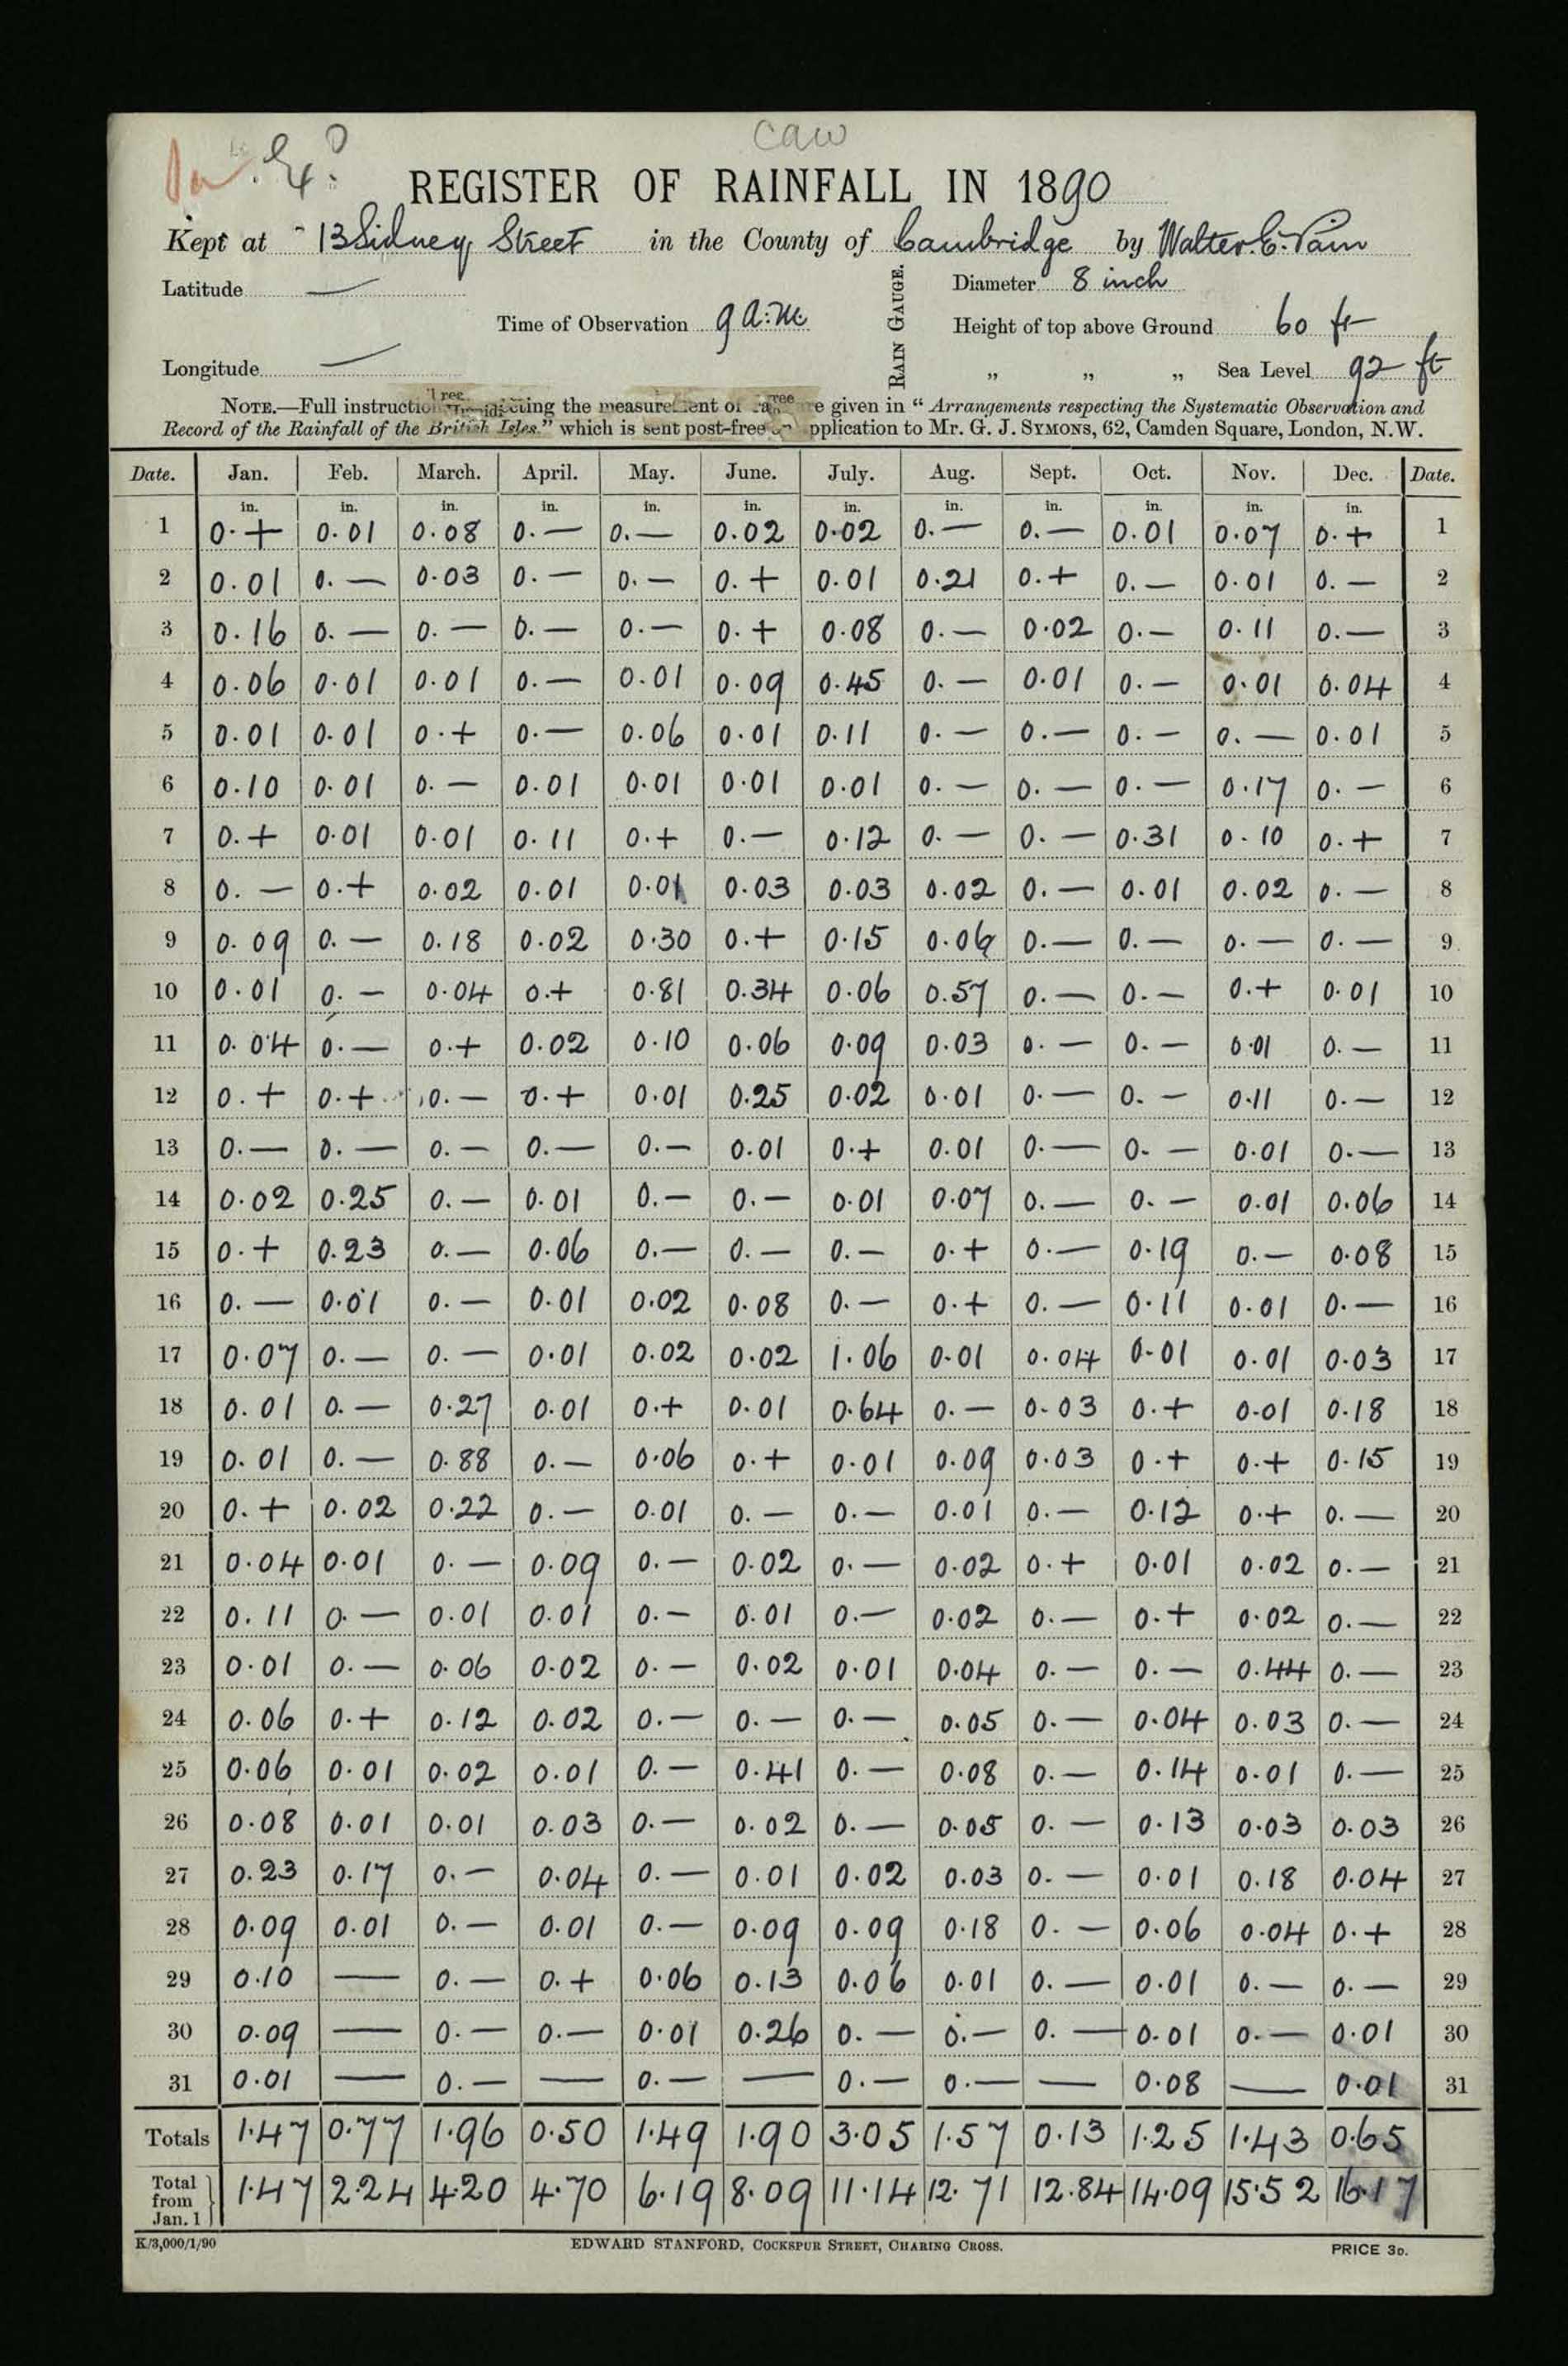 caw
REGISTER OF RAINFALL IN 1890
Kept at 13 Sidney Street in the County of Cambridge by Walter. E. Pain
Latitude —
Diameter 8 inch
Time of Observation 9 a.m.
RAIN GAUGE.
Height of top above Ground 60 ft
Longitude —
„ „ „ Sea Level 92 ft
NOTE.—Full the given in “ Arrangements respecting the Systematic Observation and
Record of the Rainfall of the British Isles.” which is sent post-free application to Mr. G. J. SYMONS, 62, Camden Square, London, N.W.
Date. Jan. Feb. March. April. May. June. July. Aug. Sept. Oct. Nov. Dec. Date.
in. in. in. in. in. in. in. in. in. in. in. in.
1 0.+ 0.01 0.08 0.— 0.— 0.02 0.02 0.— 0.— 0.01 0.07 0.+ 1
2 0.01 0.— 0.03 0.— 0.— 0.+ 0.01 0.21 0.+ 0.— 0.01 0.— 2
3 0.16 0.— 0.— 0.— 0.— 0.+ 0.08 0.— 0.02 0.— 0.11 0.— 3
4 0.06 0.01 0.01 0.— 0.01 0.09 0.45 0.— 0.01 0.— 0.01 0.04 4
5 0.01 0.01 0.+ 0.— 0.06 0.01 0.11 0.— 0.— 0.— 0.— 0.01 5
6 0.10 0.01 0.— 0.01 0.01 0.01 0.01 0.— 0.— 0.— 0.17 0.— 6
7 0.+ 0.01 0.01 0.11 0.+ 0.— 0.12 0.— 0.— 0.31 0.10 0.+ 7
8 0.— 0.+ 0.02 0.01 0.01 0.03 0.03 0.02 0.— 0.01 0.02 0.— 8
9 0.09 0.— 0.18 0.02 0.30 0.+ 0.15 0.06 0.— 0.— 0.— 0.— 9
10 0.01 0.— 0.04 0.+ 0.81 0.34 0.06 0.57 0.— 0.— 0.+ 0.01 10
11 0.04 0.— 0.+ 0.02 0.10 0.06 0.09 0.03 0.— 0.— 0.01 0.— 11
12 0.+ 0.+ 0.— 0.+ 0.01 0.25 0.02 0.01 0.— 0.— 0.11 0.— 12
13 0.— 0.— 0.— 0.— 0.— 0.01 0.+ 0.01 0.— 0.— 0.01 0.— 13
14 0.02 0.25 0.— 0.01 0.— 0.— 0.01 0.07 0.— 0.— 0.01 0.06 14
15 0.+ 0.23 0.— 0.06 0.— 0.— 0.— 0.+ 0.— 0.19 0.— 0.08 15
16 0.— 0.01 0.— 0.01 0.02 0.08 0.— 0.+ 0.— 0.11 0.01 0.— 16
17 0.07 0.— 0.— 0.01 0.02 0.02 1.06 0.01 0.04 0.01 0.01 0.03 17
18 0.01 0.— 0.27 0.01 0.+ 0.01 0.64 0.— 0.03 0.+ 0.01 0.18 18
19 0.01 0.— 0.88 0.— 0.06 0.+ 0.01 0.09 0.03 0.+ 0.+ 0.15 19
20 0.+ 0.02 0.22 0.— 0.01 0.— 0.— 0.01 0.— 0.12 0.+ 0.— 20
21 0.04 0.01 0.— 0.09 0.— 0.02 0.— 0.02 0.+ 0.01 0.02 0.— 21
22 0.11 0.— 0.01 0.01 0.— 0.01 0.— 0.02 0.— 0.+ 0.02 0.— 22
23 0.01 0.— 0.06 0.02 0.— 0.02 0.01 0.04 0.— 0.— 0.44 0.— 23
24 0.06 0.+ 0.12 0.02 0.— 0.— 0.— 0.05 0.— 0.04 0.03 0.— 24
25 0.06 0.01 0.02 0.01 0.— 0.41 0.— 0.08 0.— 0.14 0.01 0.— 25
26 0.08 0.01 0.01 0.03 0.— 0.02 0.— 0.05 0.— 0.13 0.03 0.03 26
27 0.23 0.17 0.— 0.04 0.— 0.01 0.02 0.03 0.— 0.01 0.18 0.04 27
28 0.09 0.01 0.— 0.01 0.— 0.09 0.09 0.18 0.— 0.06 0.04 0.+ 28
29 0.10 — 0.— 0.+ 0.06 0.13 0.06 0.01 0.— 0.01 0.— 0.— 29
30 0.09 — 0.— 0.— 0.01 0.26 0.— 0.— 0.— 0.01 0.— 0.01 30
31 0.01 — 0.— — 0.— — 0.— 0.— — 0.08 — 0.01 31
Totals 1.47 0.77 1.96 0.50 1.49 1.90 3.05 1.57 0.13 1.25 1.43 0.65
Total from Jan. 1 1.47 2.24 4.20 4.70 6.19 8.09 11.14 12.71 12.84 14.09 15.52 16.17
K/3,000/1/90 EDWARD STANFORD, COCKSPUR STREET, CHARING CROSS. PRICE 3D.